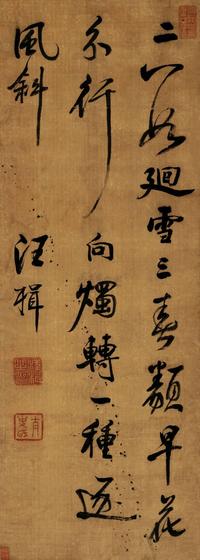 二八如廻雪三春類早花
分行向燭轉一種逐
風斜 汪楫